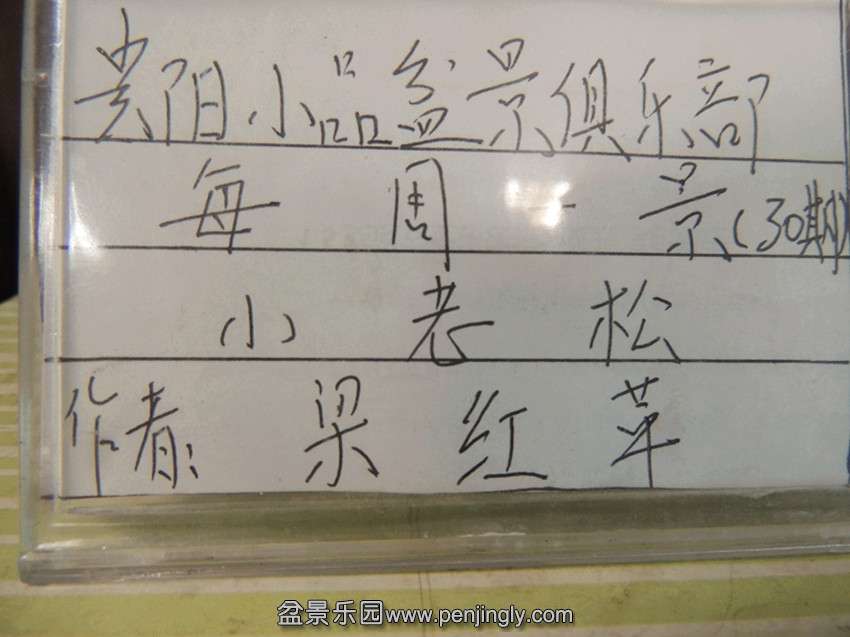 贵阳小品盆景俱乐部
每周一景(30期)
小老松
作者:梁红苹
盆景乐园www.penjingly.com